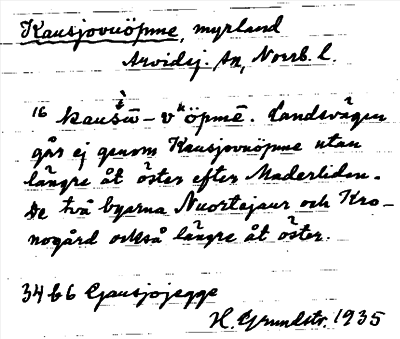 Kausjovuöpme, myrland
Arvidsj. sn, Norrb. l.
16 kausū̀ - vᵘöpmē. Landsvägen
går ej genom Kausjovuöpme utan
längre åt öster efter Maderliden.
De två byarna Nuortejaur och Kro-
nogård också längre åt öster.
3466 Gausjojegge
H. Grundstr. 1935